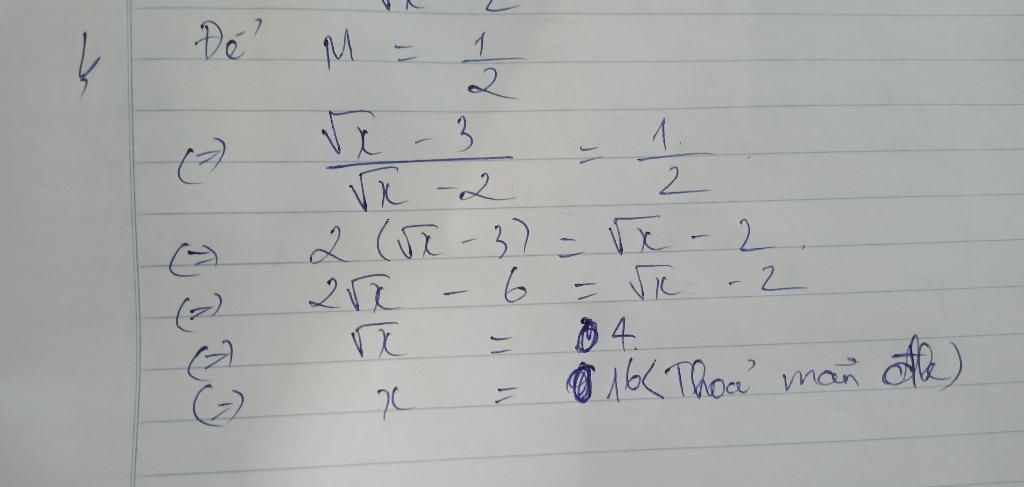 √x - 2
Để M = 1/2
(=) (√x - 3)/(√x - 2) = 1/2
(=) 2 (√x - 3) = √x - 2.
(=) 2√x - 6 = √x - 2
(=) √x = 4.
(=) x = 16 (Thoả mãn đk)